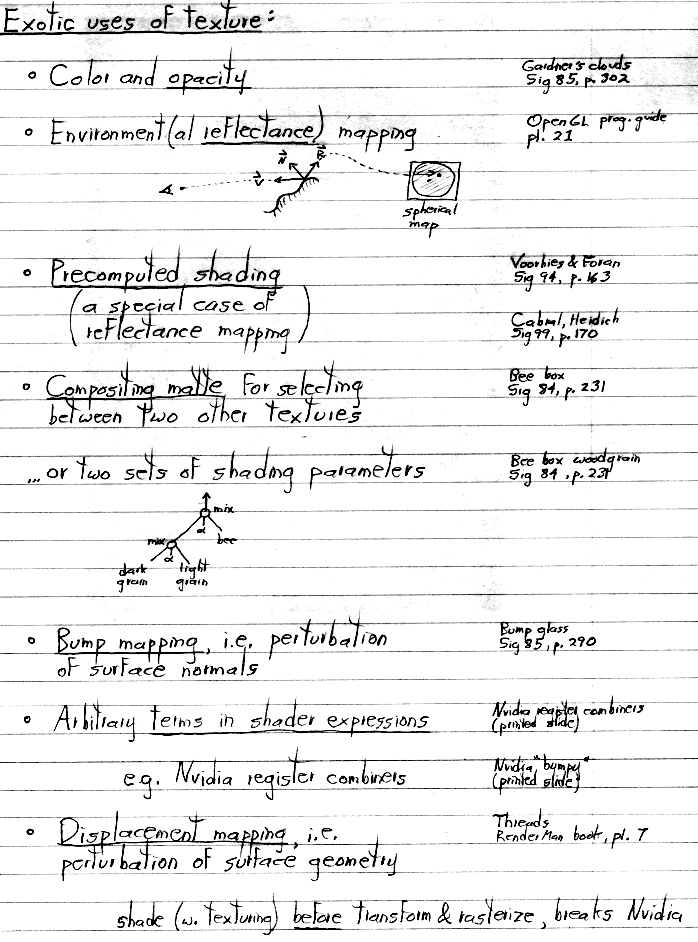 Exotic uses of texture:
• Color and opacity
Gardner's clouds
Sig 85, p. 302
• Environment(al reflectance) mapping
OpenGL prog. guide
pl. 21
N
R
V
spherical
map
• Precomputed shading
Voorhies & Foran
Sig 94, p. 163
(a special case of
reflectance mapping)
Cabral, Heidich
Sig 99, p. 170
• Compositing matte for selecting
between two other textures
Bee box
Sig 84, p. 231
...or two sets of shading parameters
Bee box woodgrain
Sig 84, p. 231
mix
α
bee
mix
α
dark
grain
light
grain
• Bump mapping, i.e. perturbation
of surface normals
Bump glass
Sig 85, p. 290
• Arbitrary terms in shader expressions
Nvidia register combiners
(printed slide)
e.g. Nvidia register combiners
Nvidia "bumpy"
(printed slide)
• Displacement mapping, i.e.
perturbation of surface geometry
Threads
RenderMan book, pl. 7
shade (w. texturing) before transform & rasterize, breaks Nvidia